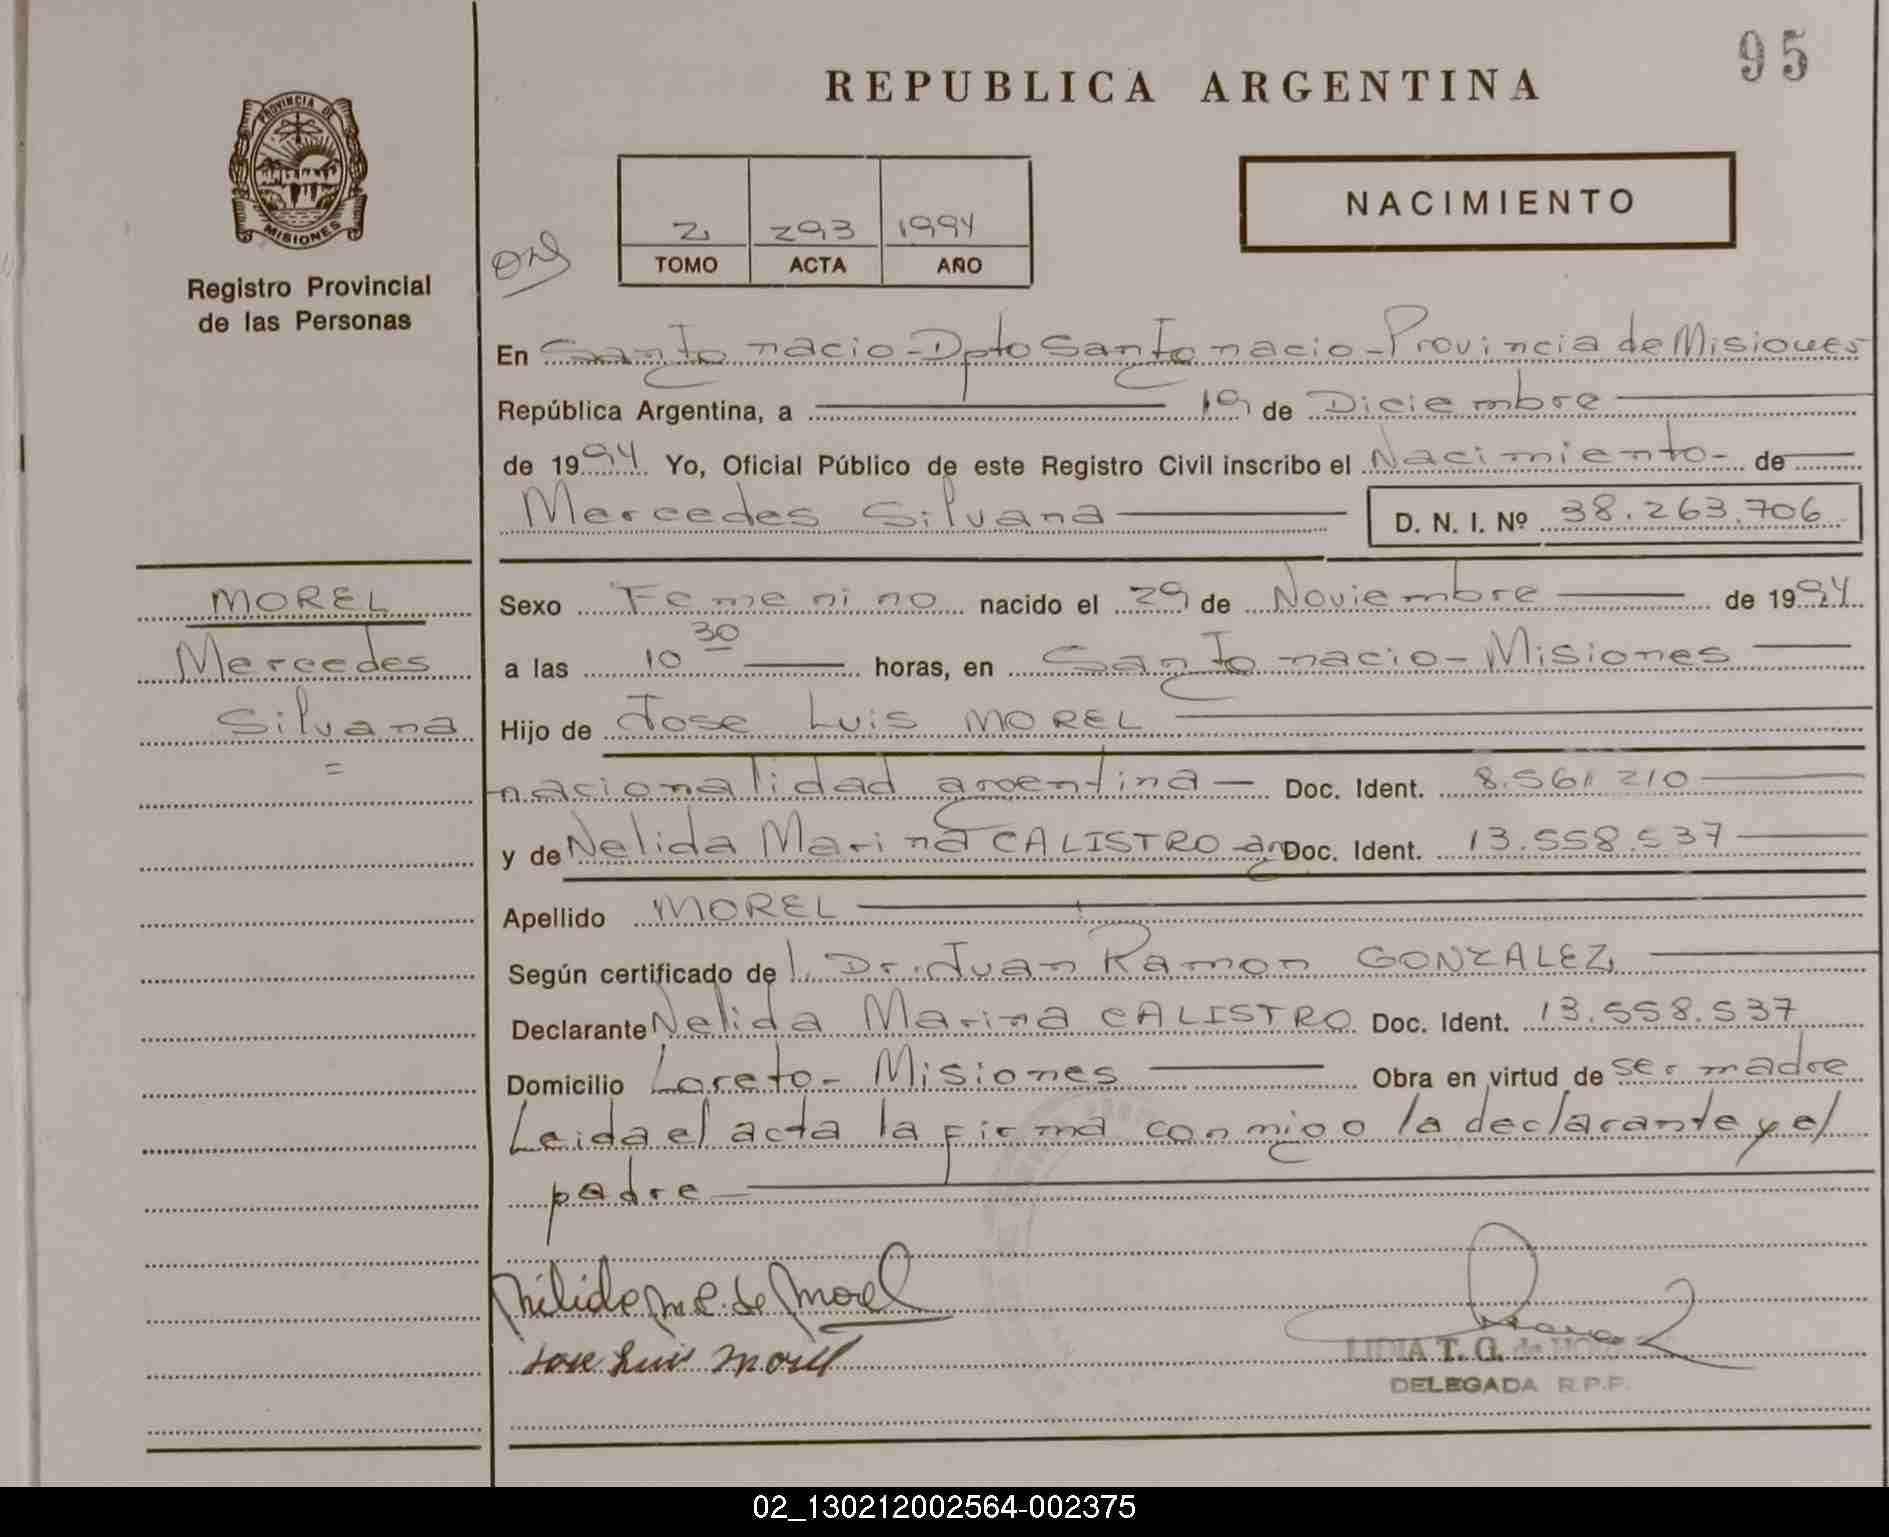 95
REPUBLICA ARGENTINA
PROVINCIA DE
MISIONES
Registro Provincial
de las Personas
NACIMIENTO
2 293 1994
TOMO ACTA AÑO
En San Ignacio - Dpto San Ignacio - Provincia de Misiones
República Argentina, a 19 de Diciembre
de 1994 Yo, Oficial Público de este Registro Civil inscribo el Nacimiento - de
Mercedes Silvana D. N. I. Nº 38.263.706
MOREL
Mercedes
Silvana
=
Sexo Femenino nacido el 29 de Noviembre de 1994
a las 10 30 horas, en San Ignacio - Misiones
Hijo de Jose Luis MOREL
nacionalidad argentina - Doc. Ident. 8.561.210
y de Nelida Marina CALISTRO - arg Doc. Ident. 13.558.537
Apellido MOREL
Según certificado de l. Dr. Juan Ramon GONZALEZ
Declarante Nelida Marina CALISTRO Doc. Ident. 13.558.537
Domicilio Loreto - Misiones Obra en virtud de ser madre
Leida el acta la firma conmigo la declarante y el
padre
de Morel
Jose Luis Morel
LIDIA T. G. de
DELEGADA R.P.P.
02_130212002564-002375